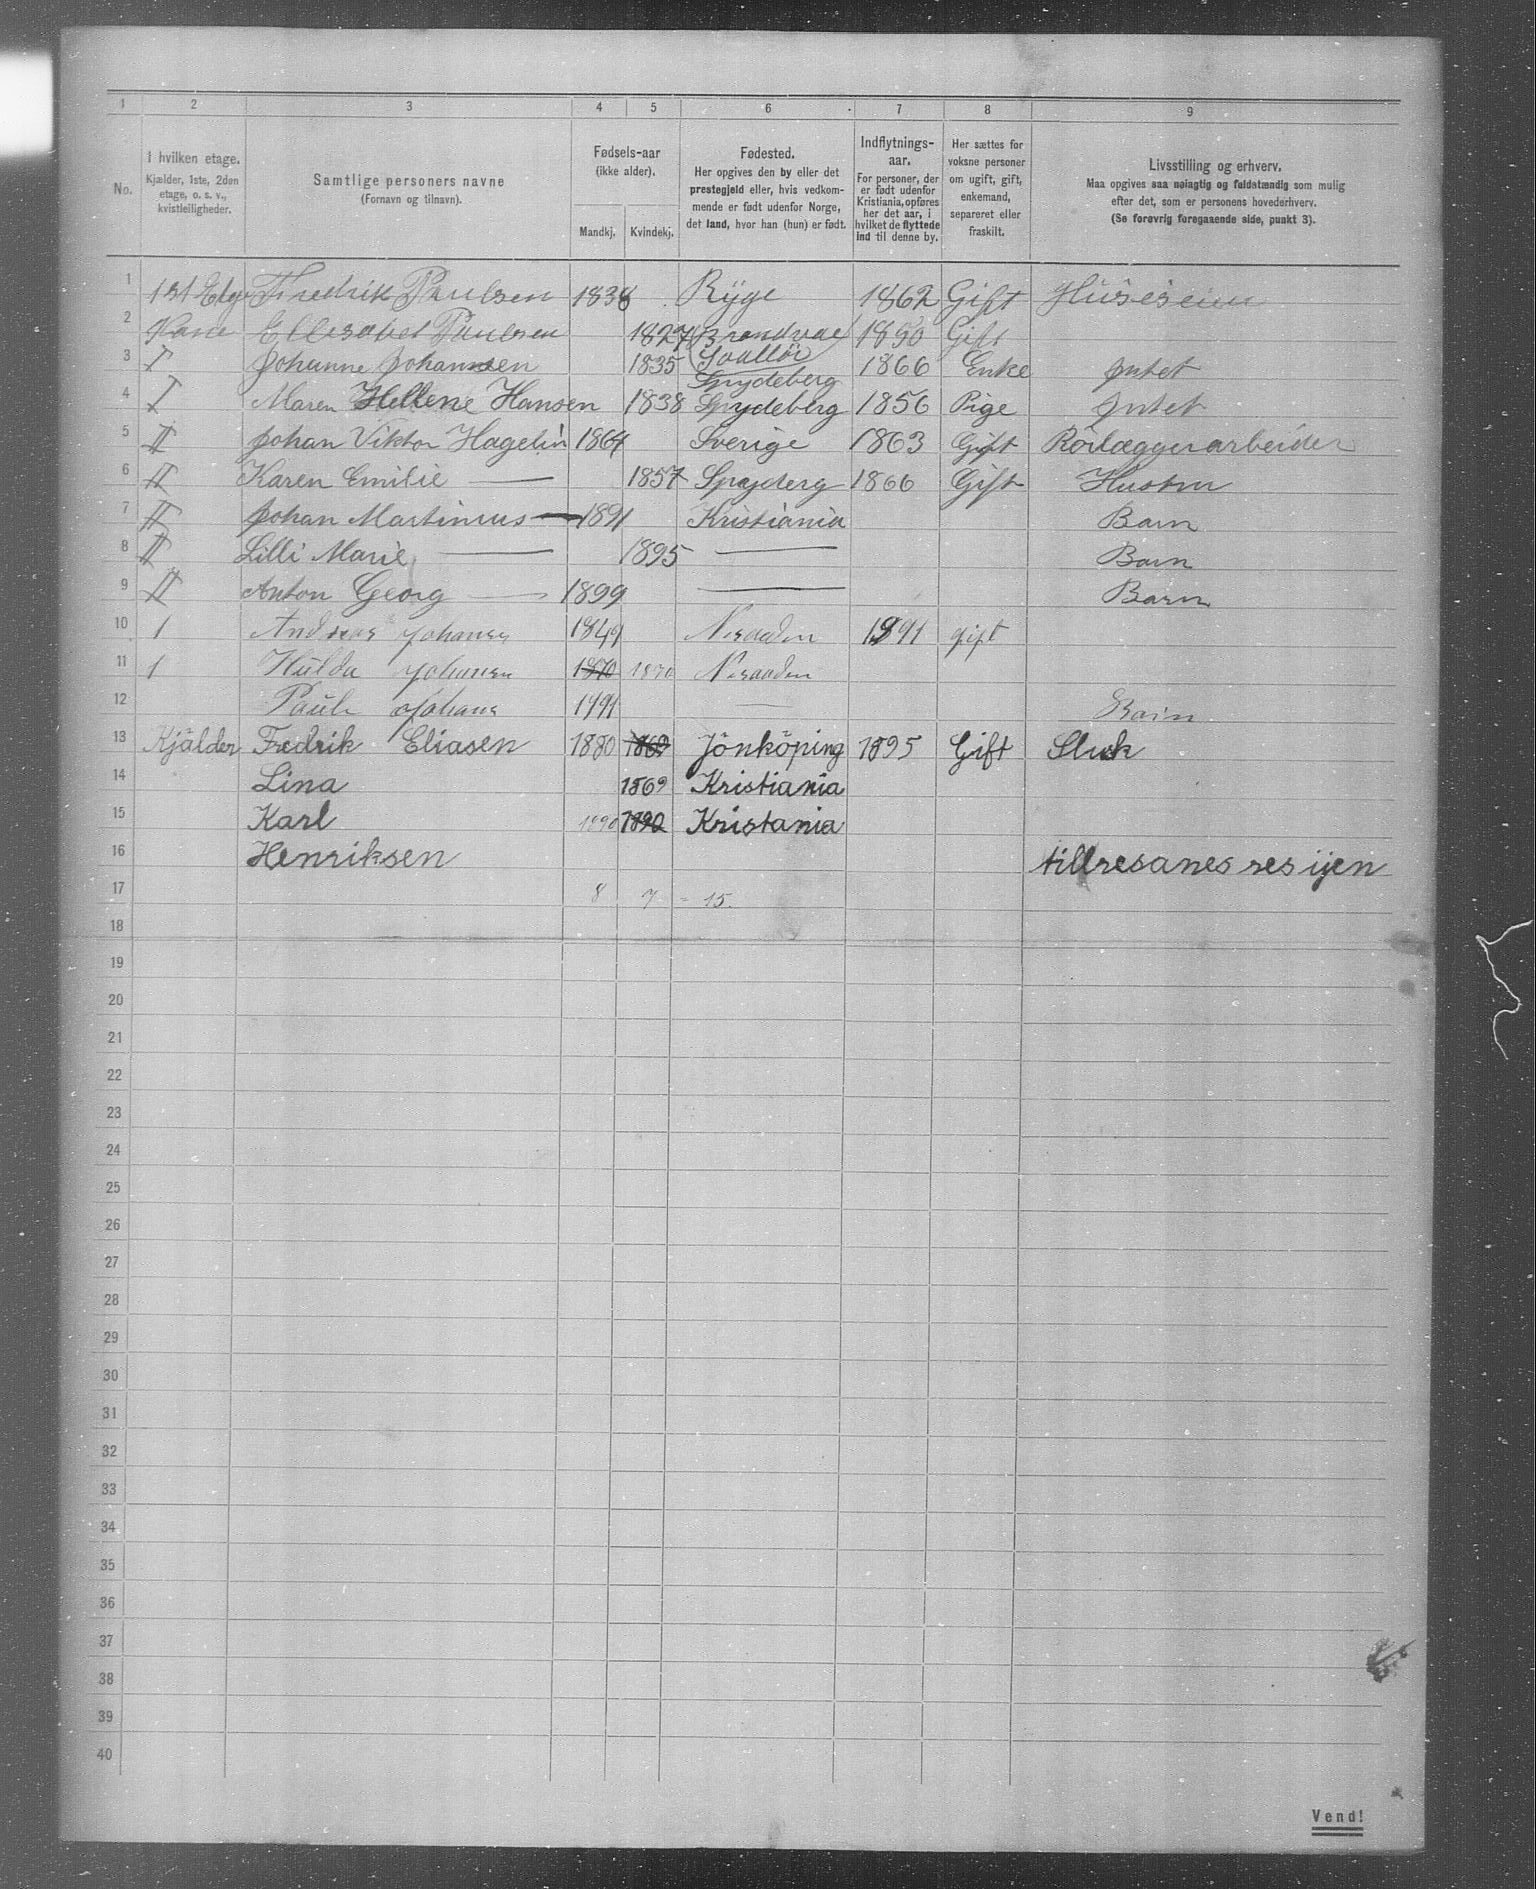 1 2 3 4 5 6 7 8 9
No.
I hvilken etage.
Kjælder, 1ste, 2den
etage, o. s. v.,
kvistleiligheder.
Samtlige personers navne
(Fornavn og tilnavn).
Fødsels-aar
(ikke alder).
Mandkj. Kvindekj.
Fødested.
Her opgives den by eller det
prestegjeld eller, hvis vedkom-
mende er født udenfor Norge,
det land, hvor han (hun) er født.
Indflytnings-
aar.
For personer, der
er født udenfor
Kristiania, opføres
her det aar, i
hvilket de flyttede
ind til denne by.
Her sættes for
voksne personer
om ugift, gift,
enkemand,
separeret eller
fraskilt.
Livsstilling og erhverv.
Maa opgives saa nøiagtig og fuldstændig som mulig
efter det, som er personens hovederhverv.
(Se forøvrig foregaaende side, punkt 3).
1 1st Etg Fredrik Paulsen 1838 Ryge 1862 Gift Huseseier
2 Ellesabet Paulsen 1827 1850 Gift
3 I Johanne Johannsen 1835 Spydeberg 1866 Enke Intet
4 I Maren Hellene Hansen 1838 Spydeberg 1856 Pige Intet
5 II Johan Viktor Hagelin 1864 Sverige 1863 Gift Rørlæggerarbeider
6 II Karen Emilie — 1857 Spyderg 1866 Gift Hustru
7 II Johan Martinius — 1891 Kristiania Barn
8 II Lilli Marie — 1895 — Barn
9 II Anton Georg — 1899 — Barn
10 1 Andreas Johansen 1849 Nesodden 1891 gift
11 1 Hulda Johansen 1870 1870 Nesodden
12 Paul Johans 1891 — Barn
13 Kjälder Fredrik Eliasen 1880 1869 Jönköping 1895 Gift Sluk
14 Lina 1869 Kristiania
15 Karl 1890 1890 Kristania
16 Henriksen tillresanes res ijen
17 8 7 = 15.
18
19
20
21
22
23
24
25
26
27
28
29
30
31
32
33
34
35
36
37
38
39
40
Vend!